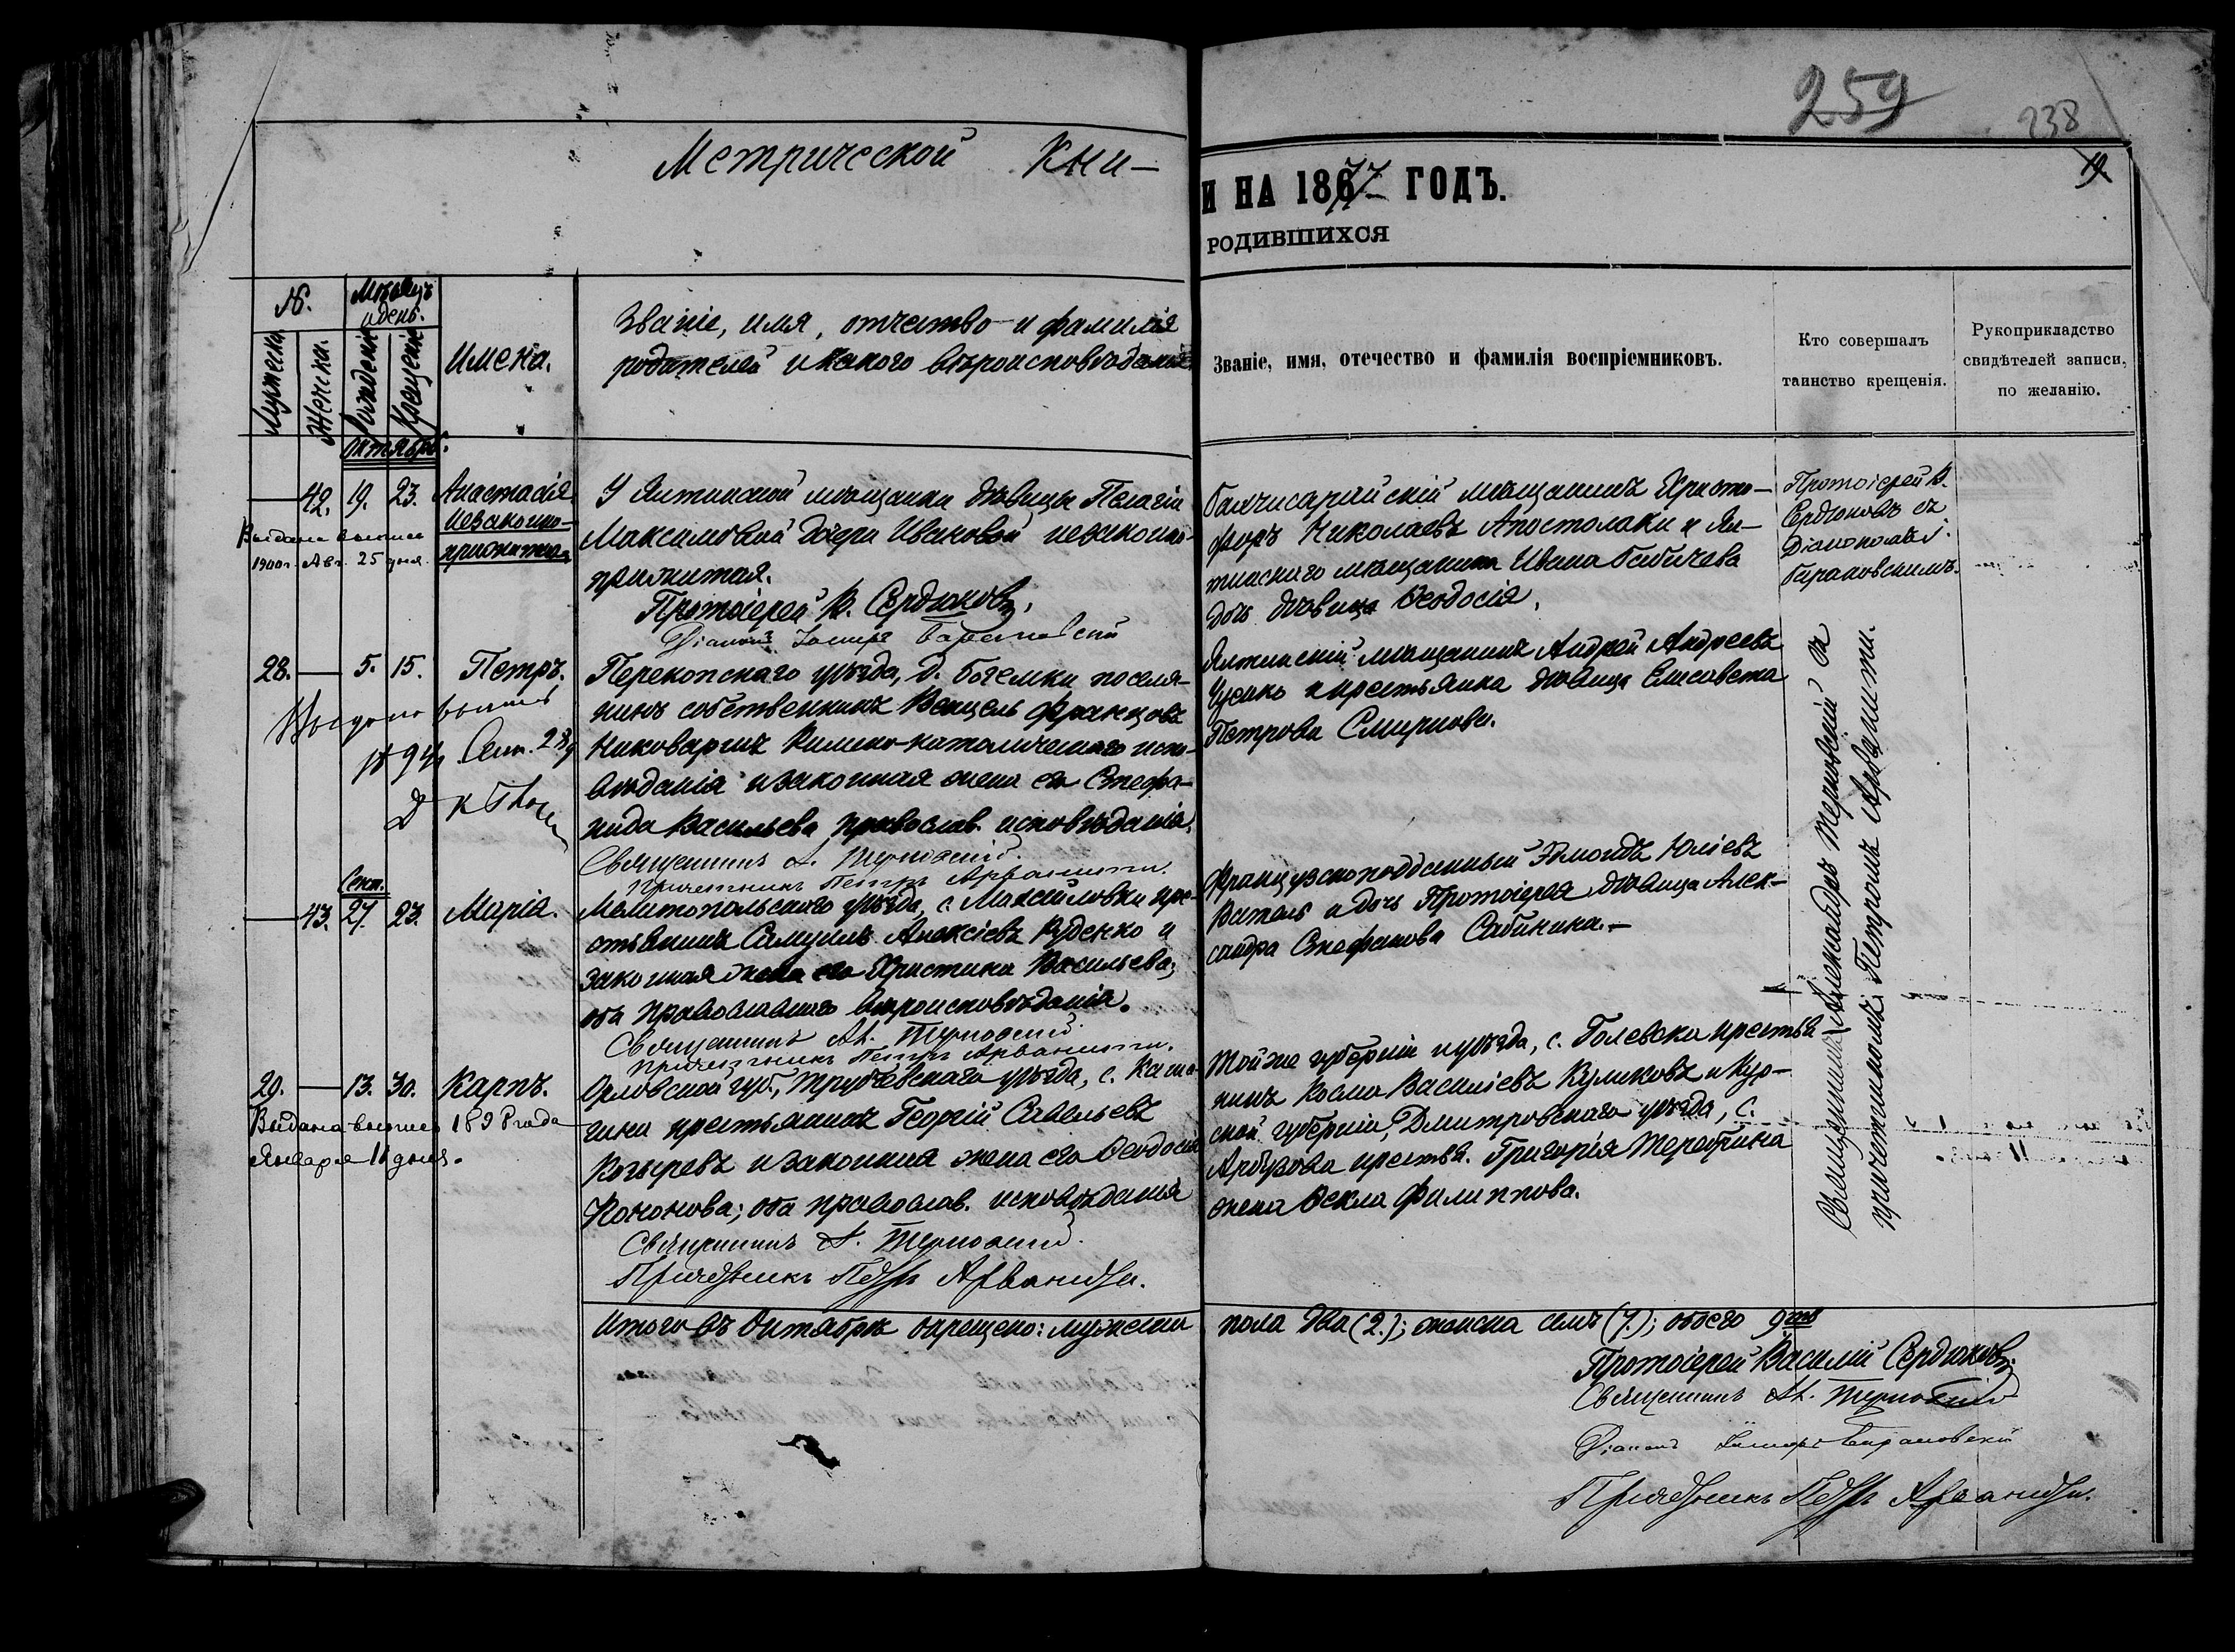 259
238
19.
Метрической Кни-
И НА 1877 ГОДЪ.
РОДИВШИХСЯ
№.
Мѣсяцъ и день.
Мужеска.
Женска.
Рожденія
Крещенія
Имена.
Званіе, имя, отчество и фамилія
родителей и какого вѣроисповѣданія
Званіе, имя, отечество и фамилія воспріемниковъ.
Кто совершалъ
таинство крещенія.
Рукоприкладство
свидѣтелей записи,
по желанію.
Октябрь.
42. 19. 23. Анастасія
незаконно-
прижитая
Выдана выпись
1900 г. Авг. 25 дня.
У Ялтинской мѣщанки дѣвицы Пелагіи
Максимовой дочери Ивановой незаконно-
прижитая.
Протоіерей В. Сердюковъ.
Діаконъ Барановскій
Бахчисарайскій мѣщанинъ Христо-
форъ Николаевъ Апостолаки и Ял-
тинскаго мѣщанина Ивана Бабичева
дочь дѣвица Ѳеодосія.
Протоіерей В.
Сердюковъ съ
Діакономъ І.
Барановскимъ.
28. 5. 15. Петръ.
Выдано выпись
1894 Сен. 28
Перекопскаго уѣзда, д. Богемки поселя-
нинъ собственникъ Венцель Францовъ
Римско-католическаго испо-
вѣданія и законная жена его Стефа-
нида Васильева православ. исповѣданія.
Священникъ А. Терновскій.
Причетникъ Петръ Арванити.
Ялтинскій мѣщанинъ Андрей Андреевъ
Усенко и крестьянка дѣвица Елисавета
Петрова Смирнова.
Сент.
43. 27. 23. Марія.
Мелитопольскаго уѣзда, с. Михайловки кре-
стьянинъ Самуилъ Алексіевъ Руденко и
законная жена его Христина Васильева;
оба православнаго вѣроисповѣданія.
Священникъ Ал. Терновскій.
Причетникъ Петръ Арванити.
Французскоподданный Эдмондъ Юліевъ
Ватель и дочь Протоіерея дѣвица Алек-
сандра Стефанова Сабинина.-
29. 13. 30. Карпъ.
Выдана выпись 1898 года
Января 11 дня.
Орловской губ., Трубчевскаго уѣзда, с.
крестьянинъ Георгій Савельевъ
Козыревъ и законная жена его Ѳеодосія
Кононова; оба православ. исповѣданія
Священникъ А. Терновскій.
Причетникъ Петръ Арванити.
Той же губерніи и уѣзда, с. крестья-
нинъ Косма Василіевъ Куликовъ и Кур-
ской губерніи, Дмитровскаго уѣзда, с.
Арбузова крестья. Григорія
жена Ѳекла Филиппова.
Священникъ Александръ Терновскій съ
причетникомъ Петромъ Арванити.
Итого въ Октябрѣ окрещено: мужеска пола два (2.); женска семь (7.); обоего 9
Протоіерей Василій Сердюковъ.
Священникъ Ал. Терновскій
Діаконъ Барановскій
Причетникъ Петръ Арванити.